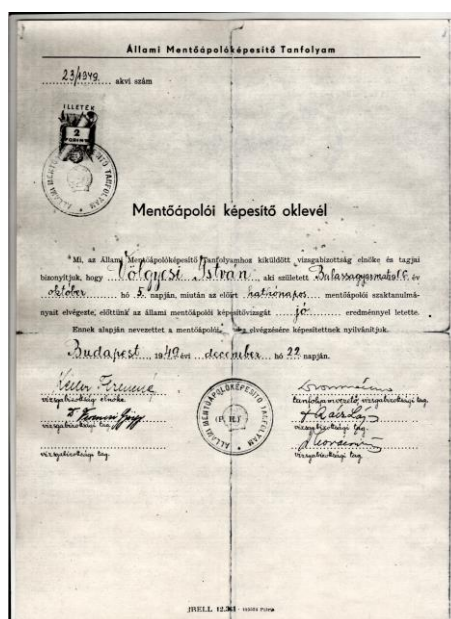 Állami Mentőápolóképesítő Tanfolyam
23/1949. akvi szám
ILLETÉK
2
FORINT
ÁLLAMI MENTŐÁPOLÓKÉPESÍTŐ TANFOLYAM
Mentőápolói képesítő oklevél
Mi, az Állami Mentőápolóképesítő Tanfolyamhoz kiküldött vizsgabizottság elnöke és tagjai
bizonyítjuk, hogy Völgyesi István, aki született Balassagyarmat év
október hó 5. napján, miután az előírt hathónapos mentőápolói szaktanulmá-
nyait elvégezte, előttünk az állami mentőápolói képesítővizsgát jó eredménnyel letette.
Ennek alapján nevezettet a mentőápolói elvégzésére képesítettnek nyilvánítjuk.
Budapest 1949 évi december hó 22 napján.
Ferencné
vizsgabizotts. elnöke
tanfolyamvezető, vizsgabizottsági tag.
ÁLLAMI MENTŐÁPOLÓKÉPESÍTŐ TANFOLYAM
(P. H.)
vizsgabizottsági tag.
vizsgabizottsági tag.
vizsgabizottsági tag.
vizsgabizottsági tag.